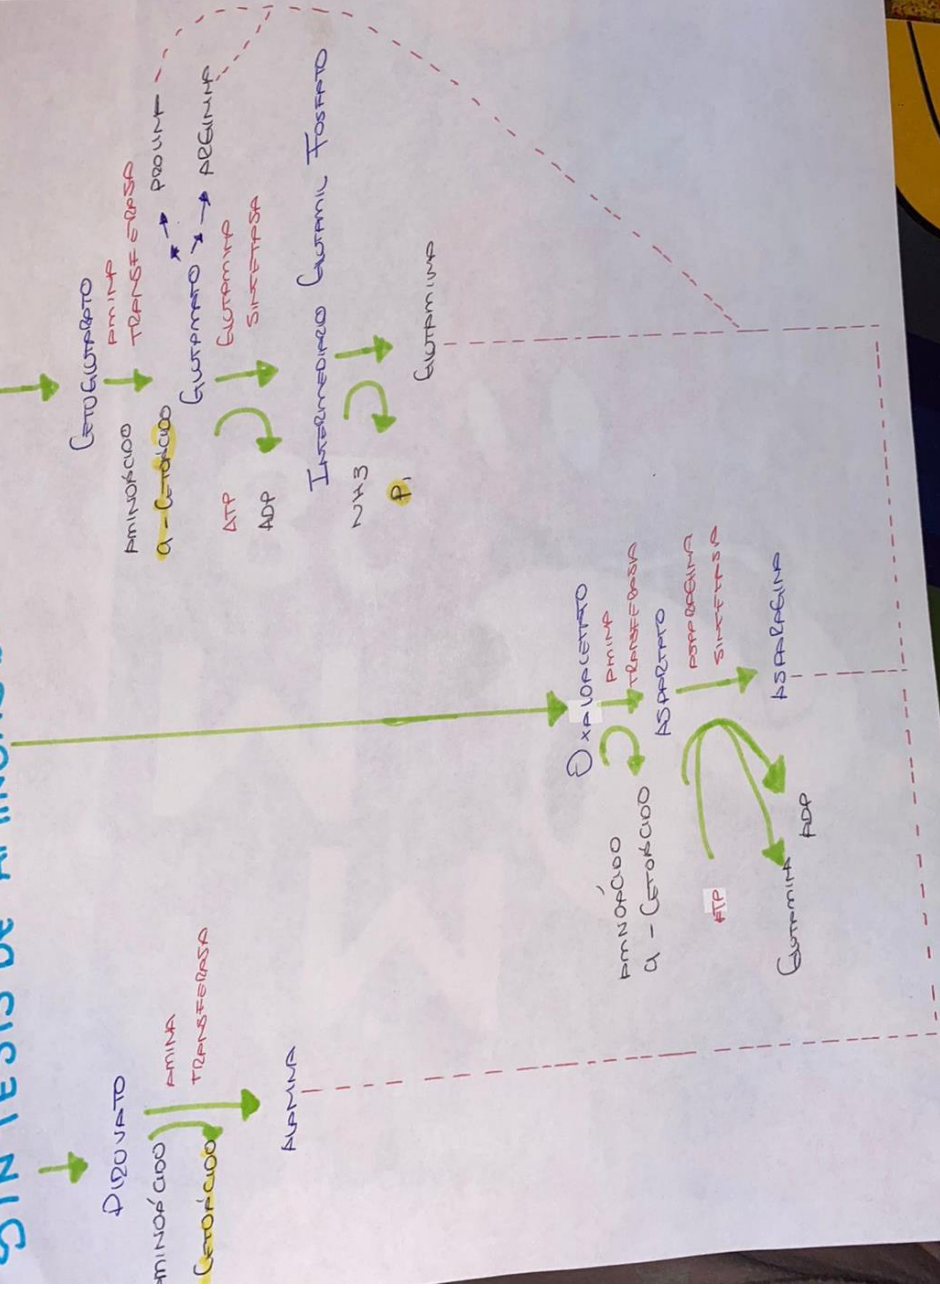 SINTESIS DE AMINOÁCIDOS
PIRUVATO
AMINOÁCIDO
AMINA
TRANSFERASA
CETOÁCIDO
ALANINA
OXALOACETATO
AMINOÁCIDO
α - CETOÁCIDO
AMINA
TRANSFERASA
ASPARTATO
ATP
ASPARAGINA
SINTETASA
GLUTAMINA
ADP
ASPARAGINA
CETOGLUTARATO
AMINOÁCIDO
α - CETOÁCIDO
AMINA
TRANSFERASA
GLUTAMATO → PROLINA
→ ARGININA
ATP
ADP
GLUTAMINA
SINTETASA
INTERMEDIARIO GLUTAMIL FOSFATO
NH3
Pi
GLUTAMINA